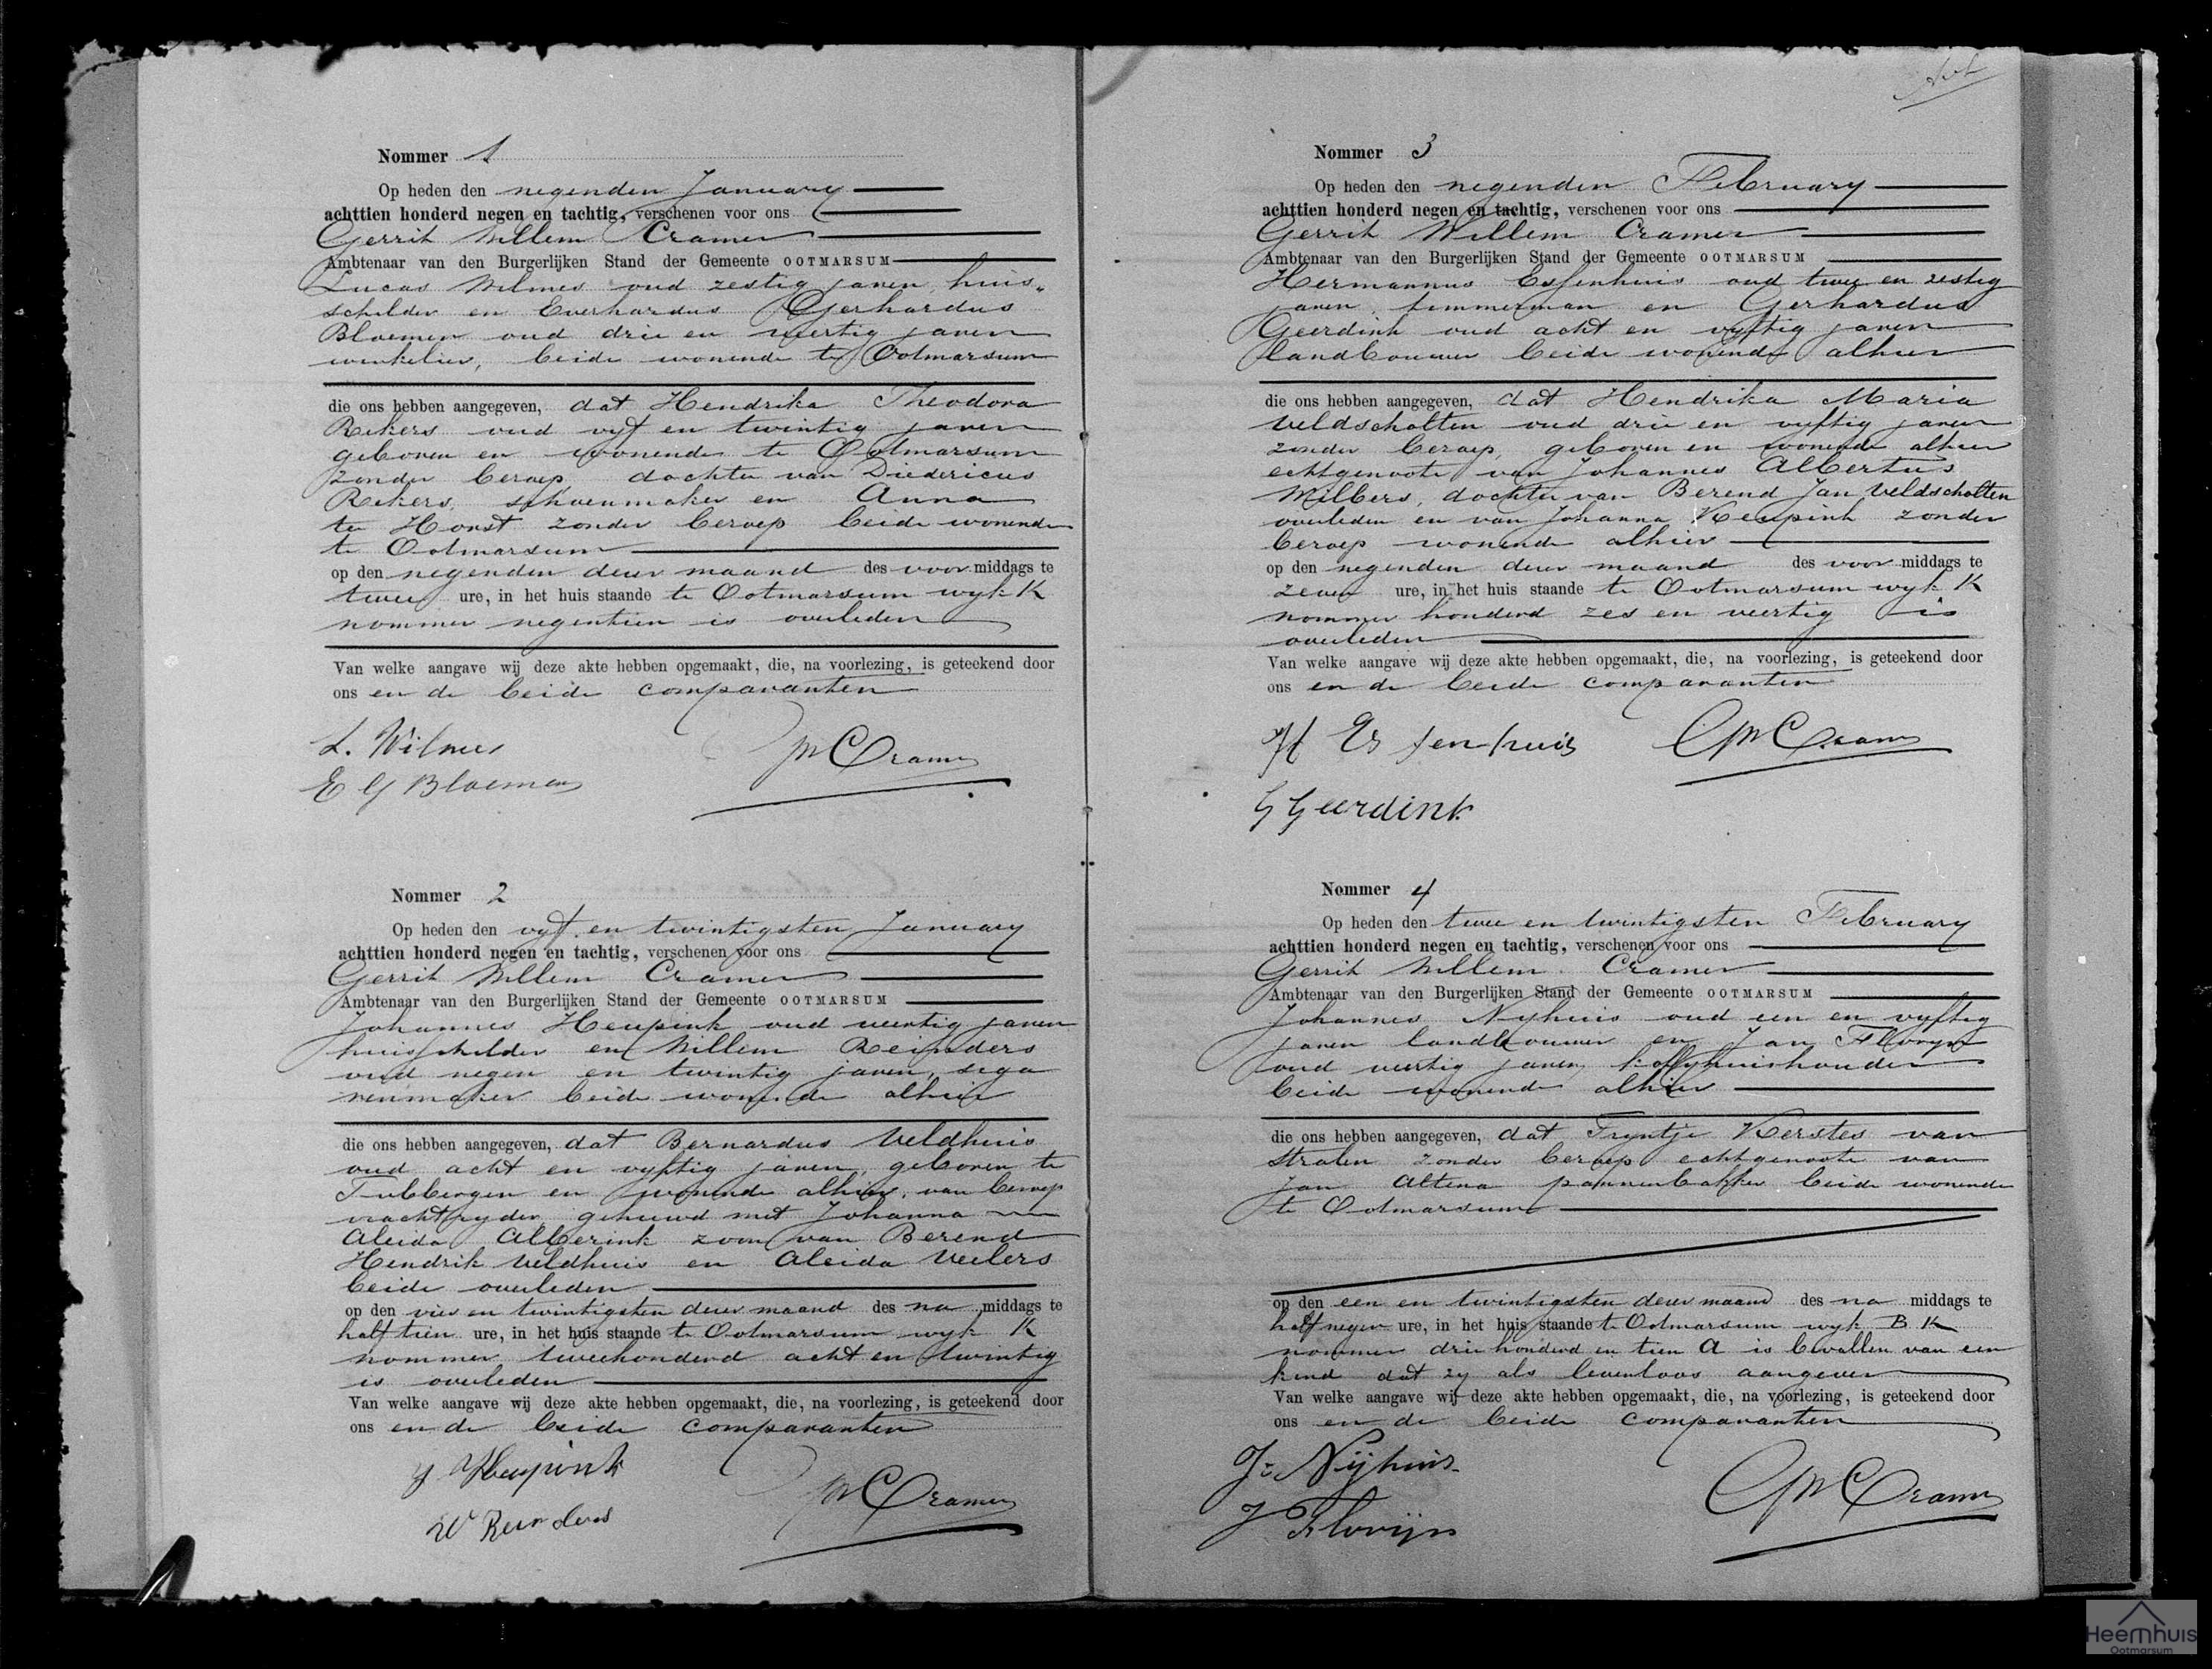 Nommer 1
Op heden den negenden January
achttien honderd negen en tachtig, verschenen voor ons
Gerrit Willem Cramer
Ambtenaar van den Burgerlijken Stand der Gemeente OOTMARSUM
Lucas Wilmes oud zestig jaren, huis„
schilder en Everhardus Gerhardus
Bloemen oud drie en veertig jaren
winkelier, beide wonende te Ootmarsum
die ons hebben aangegeven, dat Hendrika Theodora
Rekers oud vyf en twintig jaren
geboren en wonende te Ootmarsum
zonder beroep, dochter van Diedericus
Rekers, schoenmaker en Anna
ter Horst zonder beroep beide wonende
te Ootmarsum
op den negenden dezer maand des voor middags te
twee ure, in het huis staande te Ootmarsum wyk K
nommer negentien is overleden
Van welke aangave wij deze akte hebben opgemaakt, die, na voorlezing, is geteekend door
ons en de beide comparanten
L. Wilmes
GW Cramer
E G Bloemen
Nommer 2
Op heden den vyf en twintigsten January
achttien honderd negen en tachtig, verschenen voor ons
Gerrit Willem Cramer
Ambtenaar van den Burgerlijken Stand der Gemeente OOTMARSUM
Johannes Heupink oud veertig jaren
huisschilder en Willem Reinders
oud negen en twintig jaren, siga
renmaker beide wonende alhier
die ons hebben aangegeven, dat Bernardus Veldhuis
oud acht en vyftig jaren, geboren te
Tubbergen en wonende alhier, van beroep
vrachtryder, gehuwd met Johanna
Aleida Alberink zoon van Berend
Hendrik Veldhuis en Aleida Veelers
beide overleden
op den vier en twintigsten dezer maand des na middags te
half tien ure, in het huis staande te Ootmarsum wyk K
nommer tweehonderd acht en twintig
is overleden
Van welke aangave wij deze akte hebben opgemaakt, die, na voorlezing, is geteekend door
ons en de beide comparanten
J Heupink
GW Cramer
W Reinders
Nommer 3
Op heden den negenden February
achttien honderd negen en tachtig, verschenen voor ons
Gerrit Willem Cramer
Ambtenaar van den Burgerlijken Stand der Gemeente OOTMARSUM
Hermannus Essenhuis oud twee en zestig
jaren, timmerman en Gerhardus
Geerdink oud acht en vyftig jaren
landbouwer beide wonende alhier
die ons hebben aangegeven, dat Hendrika Maria
Veldscholten oud drie en vyftig jaren
zonder beroep, geboren en wonende alhier
echtgenoote van Johannes Albertus
Milbers, dochter van Berend Jan Veldscholten
overleden en van Johanna Keupink zonder
beroep wonende alhier
op den negenden dezer maand des voor middags te
zeven ure, in het huis staande te Ootmarsum wyk K
nommer honderd zes en veertig is
overleden
Van welke aangave wij deze akte hebben opgemaakt, die, na voorlezing, is geteekend door
ons en de beide comparanten
H Essenhuis
GW Cramer
G Geerdink
Nommer 4
Op heden den twee en twintigsten February
achttien honderd negen en tachtig, verschenen voor ons
Gerrit Willem Cramer
Ambtenaar van den Burgerlijken Stand der Gemeente OOTMARSUM
Johannes Nyhuis oud een en vyftig
jaren landbouwer en Jan Floryn
oud veertig jaren, koffyhuishouder
beide wonende alhier
die ons hebben aangegeven, dat Tryntje Kerstes van
Stralen zonder beroep echtgenoote van
Jan Altena pannenbakker beide wonende
te Ootmarsum
op den een en twintigsten dezer maand des na middags te
half negen ure, in het huis staande te Ootmarsum wyk B K
nommer driehonderd en tien A is bevallen van een
kind dat zy als levenloos aangeven
Van welke aangave wij deze akte hebben opgemaakt, die, na voorlezing, is geteekend door
ons en de beide comparanten
J. Nijhuis
GW Cramer
J Florijn
Heemhuis
Ootmarsum